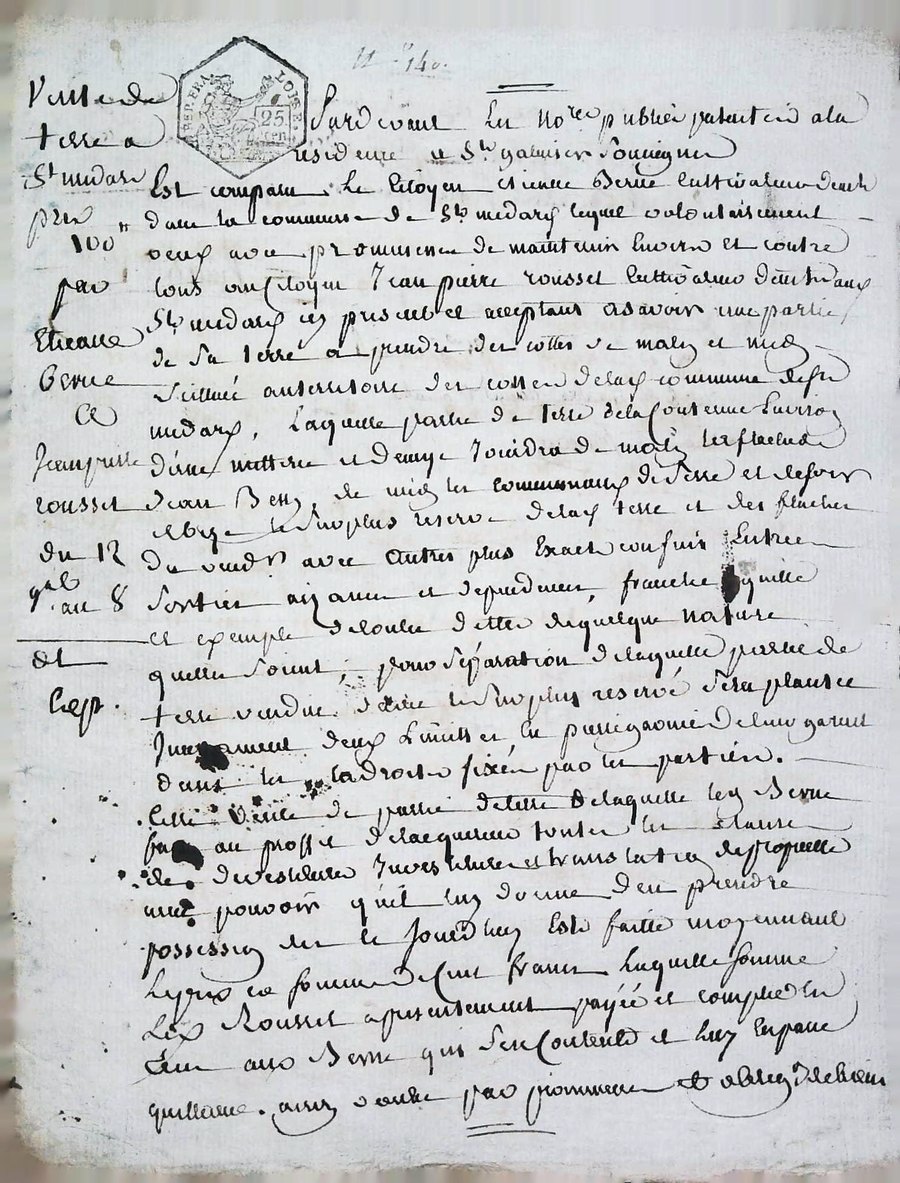 Vente de
terre a
St medard
prix
100 ₶
par
Etienne
Berne
a
Jean pierre
rousset
du 12
gal
an 8
et
Cepr.
REP. FRA.
LOIRE.
25
cen
n° 140.
Pardevant les Nores publics patentés a la
residence de St galmier soussignés
Est comparu Le Citoyen etienne Berne cultivateur demt
dans la commune de St medard lequel volontairement
vend avec promesse de maintenir envers et contre
tous au Citoyen Jean pierre rousset cultivateur demt aud
St medard ici present et acceptant asavoir une partie
de sa terre a prendre des cottes de matin et midy
Scittuée au territoire des de lad commune de St
medard, Laquelle partie de terre de la Contenue Environ
d'une metterée et demye Joindra de matin
Jean de midy les communaux de et de soir
et bize le surplus reservé de lad terre et des
du vendr avec autres plus Exacts confins Entrées
Sorties aizances et dependances, franche quitte
et exempte de toutes dettes de quelque nature
quelles soient, pour séparation de laquelle partie de
terre vendue d'avec le surplus reservé sera plantée
deux Limittes en pierre garnies de leurs garants
dans les endroits fixés par les parties.
Cette Vente de partie de terre de laquelle led Berne
fait au proffit de lacquereur toutes les clauses
de devestiture Investiture et translation de proprieté
avec pouvoir qu'il luy donne d'en prendre
possession des le Jourdhuy Est faitte moyennant
Le prix et somme de Cent francs Laquelle somme
Led Rousset a presentement payée et comptée en
aud Berne qui s'en Contente et luy en passe
quittance. ainsy convenu par promesse et obligon de biens